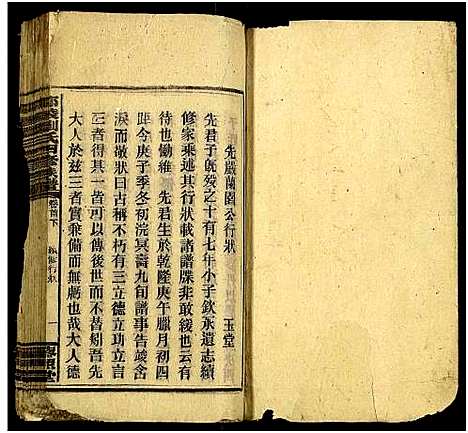 先嚴蘭園公行狀
玉堂
先君子既殁之十有七年小子欽承遺志續
修家乘述其行狀載諸譜牒非敢緩也云有
待也慟維　先君生於乾隆庚午臘月初四
距今庚子季冬初浣冥壽九旬譜事告竣含
淚而敬狀曰古稱不朽有三立德立功立言
三者得一已可以傳後世而不替矧吾先
大人於兹三者實兼備而無虧也哉大人德
卷首下
行狀
一